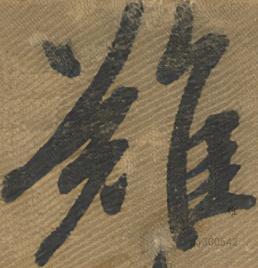 難
300542